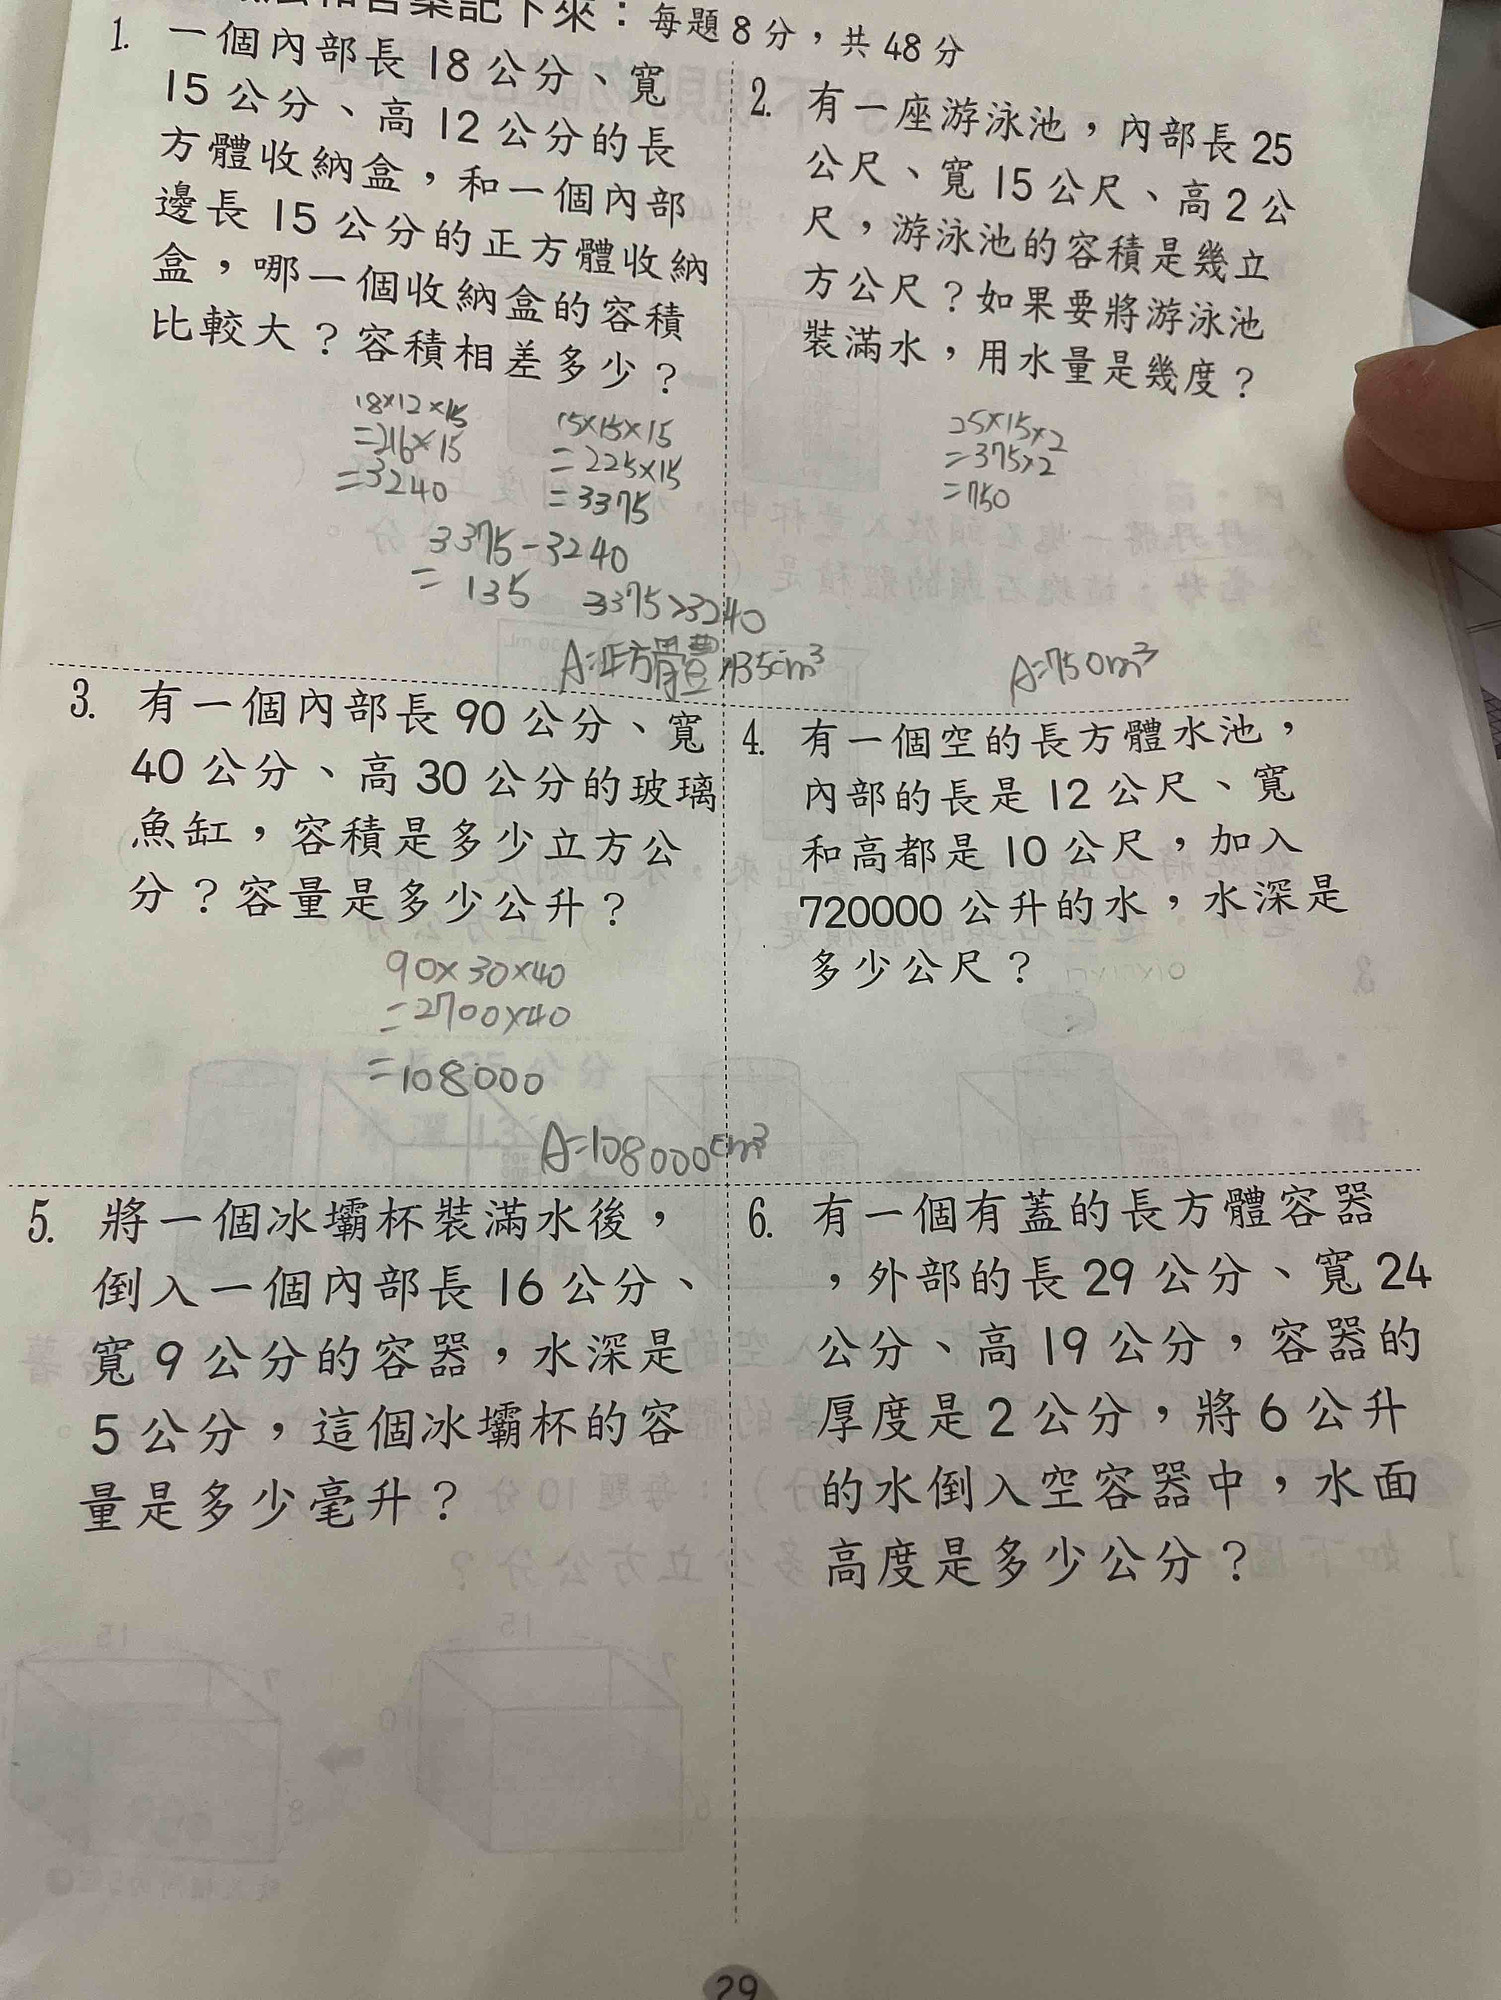 和答案記下來：每題8分，共48分
1. 一個內部長18公分、寬
15公分、高12公分的長
方體收納盒，和一個內部
邊長15公分的正方體收納
盒，哪一個收納盒的容積
比較大？容積相差多少？
18×12×15
=216×15
=3240
15×15×15
=225×15
=3375
3375-3240
=135
3375>3240
A:正方體,135cm³
2. 有一座游泳池，內部長25
公尺、寬15公尺、高2公
尺，游泳池的容積是幾立
方公尺？如果要將游泳池
裝滿水，用水量是幾度？
25×15×2
=375×2
=750
A=750m³
3. 有一個內部長90公分、寬
40公分、高30公分的玻璃
魚缸，容積是多少立方公
分？容量是多少公升？
90×30×40
=2700×40
=108000
A=108000cm³
4. 有一個空的長方體水池，
內部的長是12公尺、寬
和高都是10公尺，加入
720000公升的水，水深是
多少公尺？
5. 將一個冰壩杯裝滿水後，
倒入一個內部長16公分、
寬9公分的容器，水深是
5公分，這個冰壩杯的容
量是多少毫升？
6. 有一個有蓋的長方體容器
，外部的長29公分、寬24
公分、高19公分，容器的
厚度是2公分，將6公升
的水倒入空容器中，水面
高度是多少公分？
29